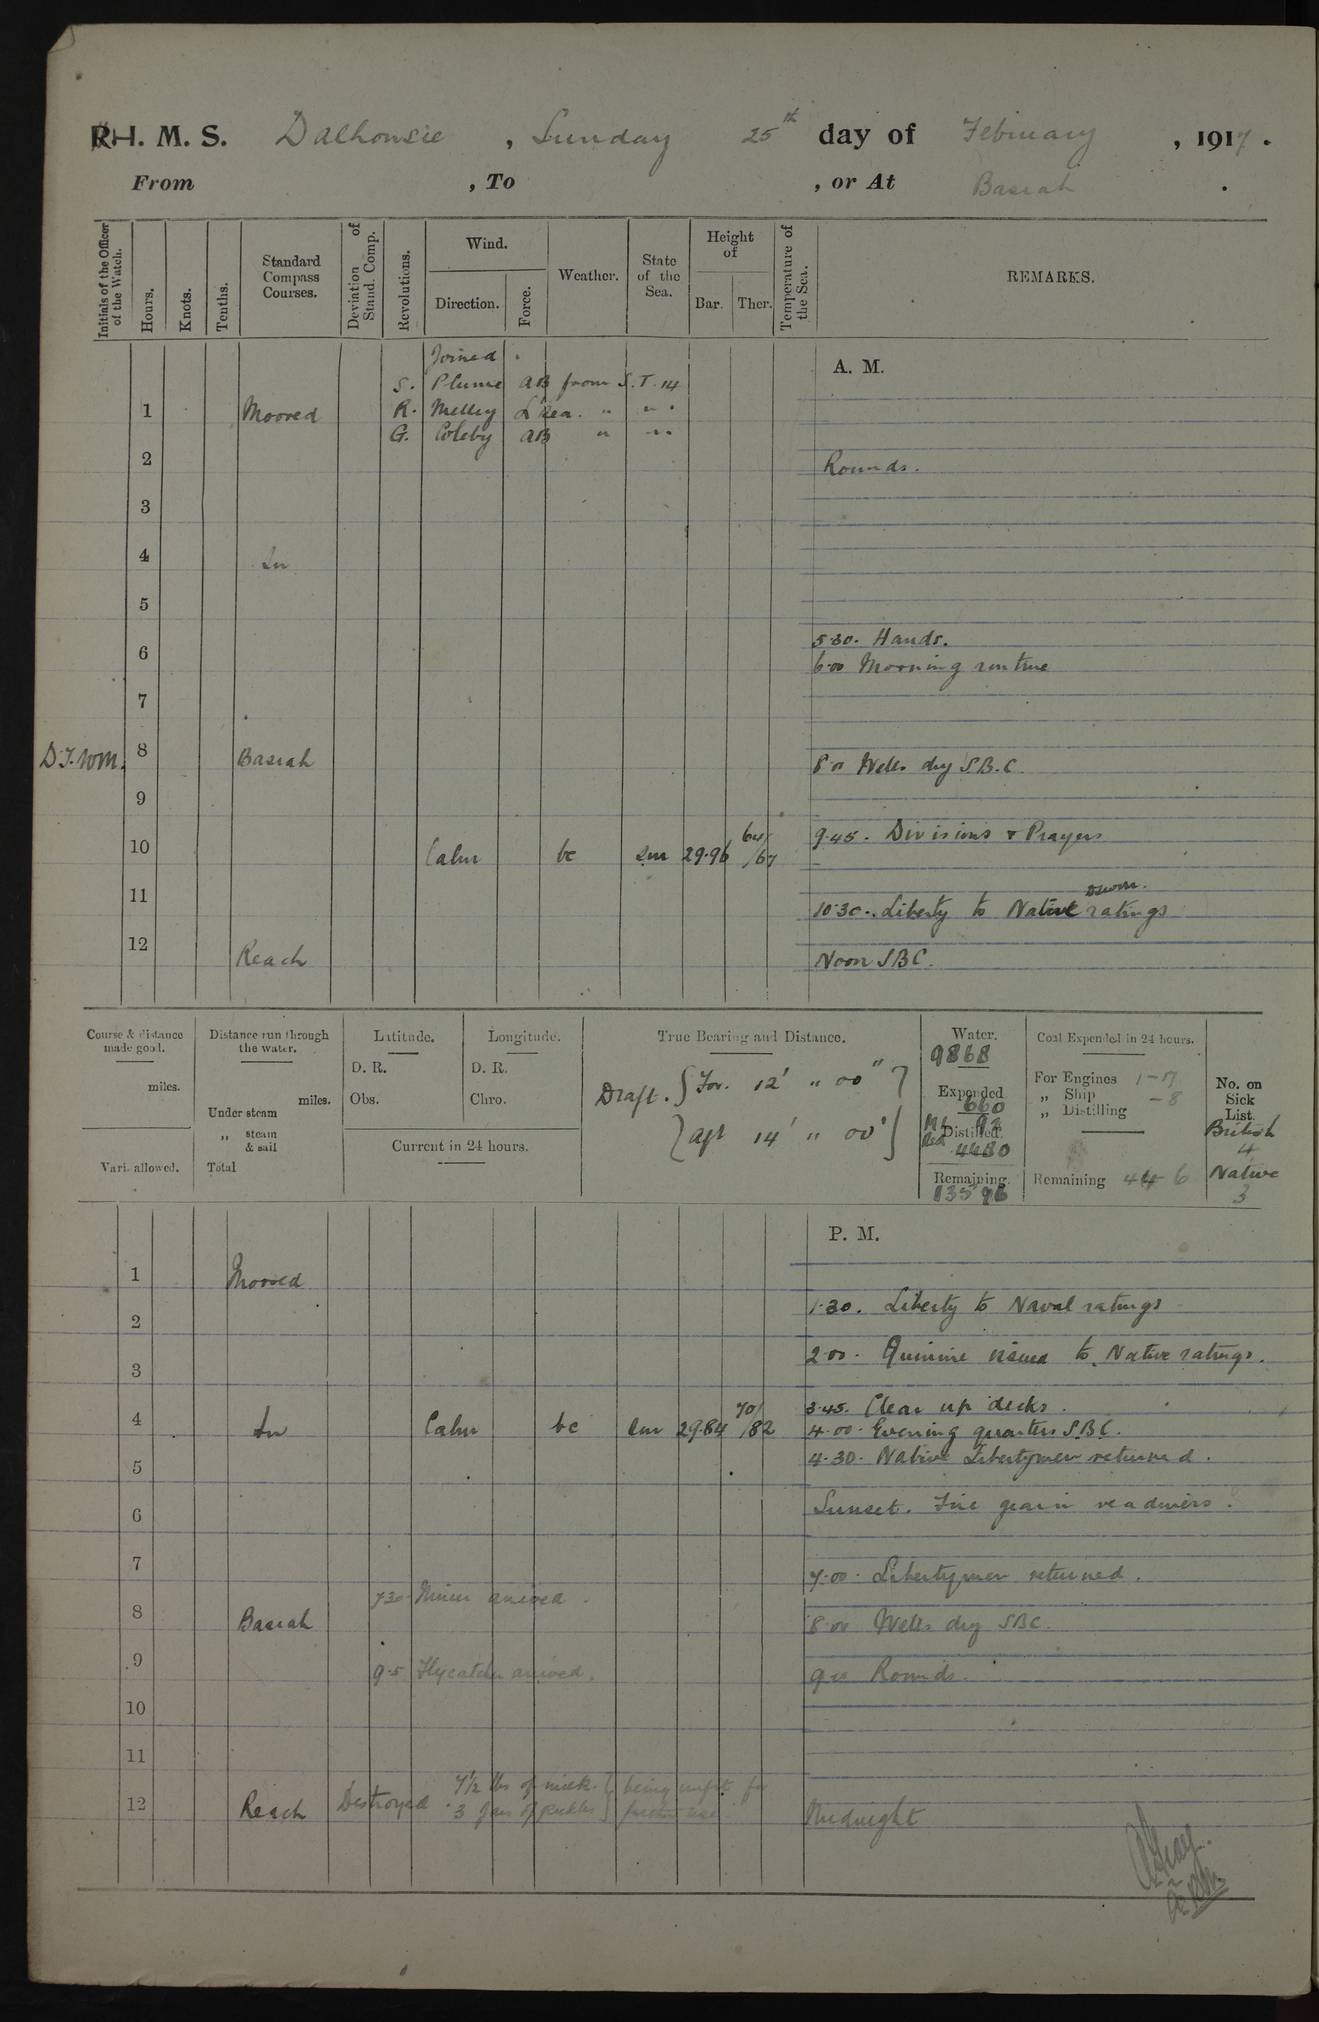 R.H. M. S. Dalhousie, Sunday 25th day of February, 1917.
From , To , or At Basrah.
Initials of the Officer of the Watch.
Hours.
Knots.
Tenths.
Standard Compass Courses.
Deviation of Stand. Comp.
Revolutions.
Wind.
Direction.
Force.
Weather.
State of the Sea.
Height of
Bar.
Ther.
Temperature of the Sea.
REMARKS.
Joined.
A. M.
S. Plume AB from S.T. 14
1 Moored R. Melley L'Sea. " " "
G. Coleby AB " " "
2 Rounds.
3
4 In
5
5.30. Hands.
6 6.00 Morning routine
7
D.T.WM. 8 Basrah 8.00 Wells dry S.B.C.
9
9.45. Divisions & Prayers
10 Calm bc Sm 29.96 64/67
11
10.30. Liberty to Native ratings
12 Reach Noon SBC.
Course & distance made good.
miles.
Vari. allowed.
Distance run through the water.
miles.
Under steam
„ steam & sail
Total
Latitude.
D. R.
Obs.
Longitude.
D. R.
Chro.
Current in 24 hours.
True Bearing and Distance.
Draft. { For. 12' " 00" }
{ Aft 14' " 00" }
Water.
9868
Expended
660
92
Distilled.
4480
Remaining.
13596
Coal Expended in 24 hours.
For Engines 1-17
„ Ship -8
„ Distilling
Remaining 446
No. on Sick List.
British
4
Native
3
P. M.
1 Moored
1.30. Liberty to Naval ratings
2
2.00. Quinine issued to Native ratings.
3
3.45. Clear up decks.
4 In Calm bc Sm 29.84 70/82 4.00. Evening quarters S.B.C.
4.30. Native Libertymen returned.
5
Sunset. Fire gear in readiness.
6
7 7.00. Libertymen returned.
7.30 Miner arrived.
8 Basrah 8.00 Wells dry SBC.
9 9.5 Flycatcher arrived. 9.00 Rounds.
10
11
Destroyed 7 1/2 lbs of milk } being unfit for
12 Reach 3 jars of pickles } further use Midnight